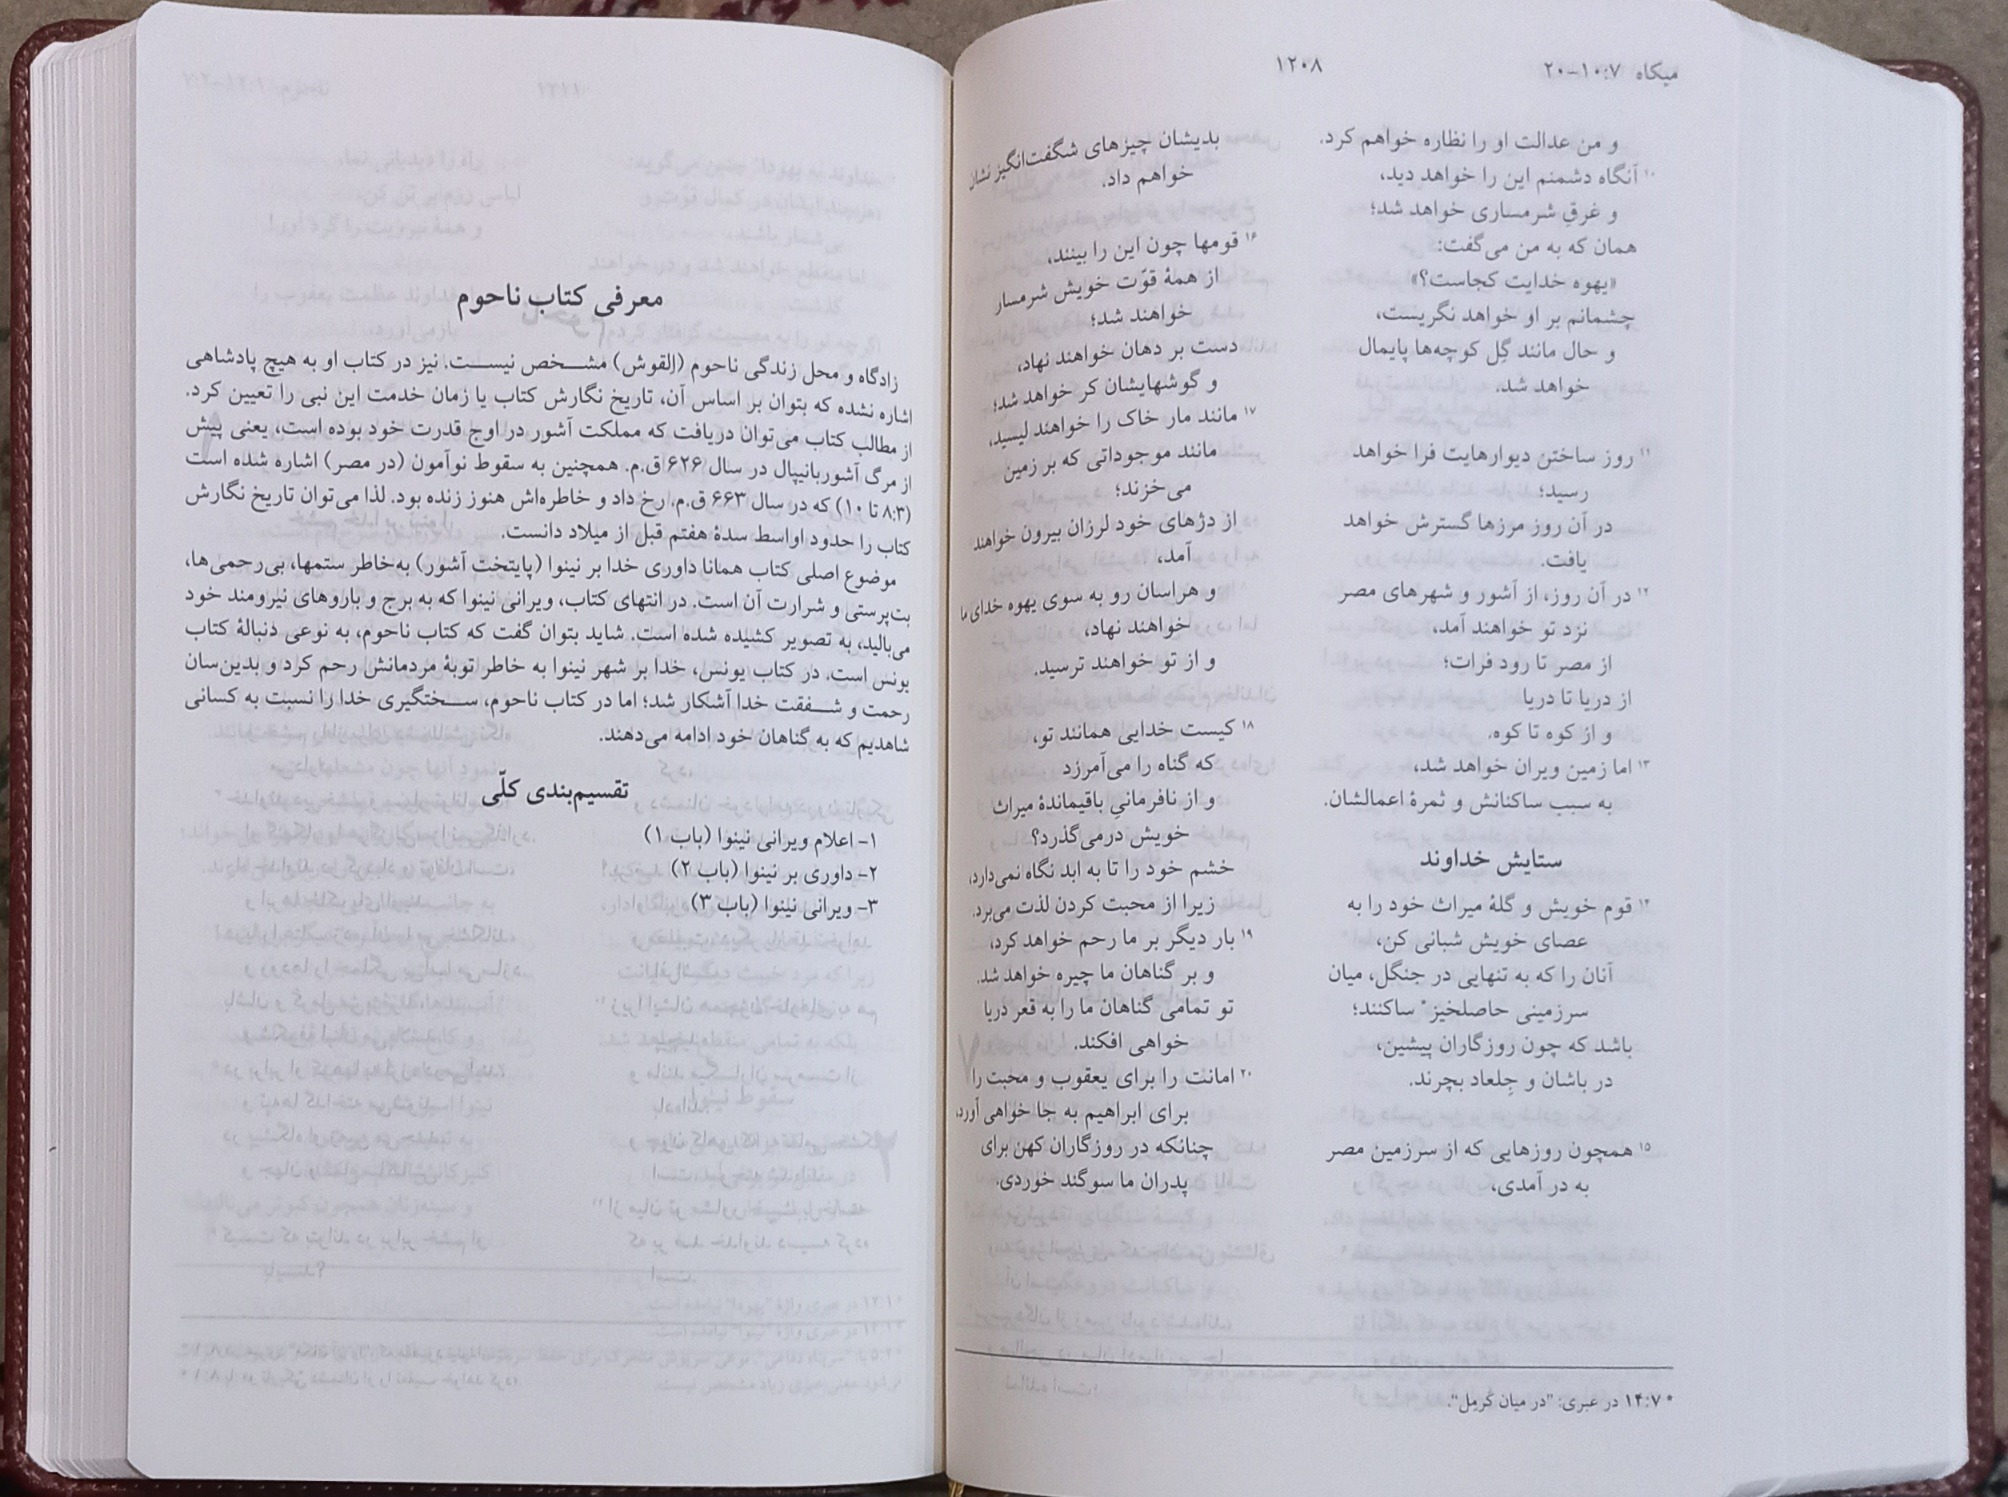 میکاه ۱۰:۷-۲۰
۱۲۰۸
و من عدالت او را نظاره خواهم کرد.
۱۰ آنگاه دشمنم این را خواهد دید،
و غرقِ شرمساری خواهد شد؛
همان که به من می‌گفت:
«یهوه خدایت کجاست؟»
چشمانم بر او خواهد نگریست،
و حال مانند گِل کوچه‌ها پایمال
خواهد شد.
۱۱ روز ساختن دیوارهایت فرا خواهد
رسید؛
در آن روز مرزها گسترش خواهد
یافت.
۱۲ در آن روز، از آشور و شهرهای مصر
نزد تو خواهند آمد،
از مصر تا رود فرات؛
از دریا تا دریا
و از کوه تا کوه.
۱۳ اما زمین ویران خواهد شد،
به سبب ساکنانش و ثمرهٔ اعمالشان.
ستایش خداوند
۱۴ قوم خویش و گلهٔ میراث خود را به
عصای خویش شبانی کن،
آنان را که به تنهایی در جنگل، میان
سرزمینی حاصلخیز* ساکنند؛
باشد که چون روزگاران پیشین،
در باشان و جِلعاد بچرند.
۱۵ همچون روزهایی که از سرزمین مصر
به در آمدی،
بدیشان چیزهای شگفت‌انگیز نشان
خواهم داد.
۱۶ قومها چون این را بینند،
از همهٔ قوّت خویش شرمسار
خواهند شد؛
دست بر دهان خواهند نهاد،
و گوشهایشان کر خواهد شد؛
۱۷ مانند مار خاک را خواهند لیسید،
مانند موجوداتی که بر زمین
می‌خزند؛
از دژهای خود لرزان بیرون خواهند
آمد،
و هراسان رو به سوی یهوه خدای ما
خواهند نهاد،
و از تو خواهند ترسید.
۱۸ کیست خدایی همانند تو،
که گناه را می‌آمرزد
و از نافرمانیِ باقیماندهٔ میراث
خویش درمی‌گذرد؟
خشم خود را تا به ابد نگاه نمی‌دارد،
زیرا از محبت کردن لذت می‌برد.
۱۹ بار دیگر بر ما رحم خواهد کرد،
و بر گناهان ما چیره خواهد شد.
تو تمامی گناهان ما را به قعر دریا
خواهی افکند.
۲۰ امانت را برای یعقوب و محبت را
برای ابراهیم به جا خواهی آورد،
چنانکه در روزگاران کهن برای
پدران ما سوگند خوردی.
* ۱۴:۷ در عبری: "در میان کَرمِل".
معرفی کتاب ناحوم
زادگاه و محل زندگی ناحوم (اِلقوش) مشخص نیست. نیز در کتاب او به هیچ پادشاهی
اشاره نشده که بتوان بر اساس آن، تاریخ نگارش کتاب یا زمان خدمت این نبی را تعیین کرد.
از مطالب کتاب می‌توان دریافت که مملکت آشور در اوج قدرت خود بوده است، یعنی پیش
از مرگ آشوربانیپال در سال ۶۲۶ ق.م. همچنین به سقوط نوآمون (در مصر) اشاره شده است
(۸:۳ تا ۱۰) که در سال ۶۶۳ ق.م. رخ داد و خاطره‌اش هنوز زنده بود. لذا می‌توان تاریخ نگارش
کتاب را حدود اواسط سدهٔ هفتم قبل از میلاد دانست.
موضوع اصلی کتاب همانا داوری خدا بر نینوا (پایتخت آشور) به‌خاطر ستمها، بی‌رحمی‌ها،
بت‌پرستی و شرارت آن است. در انتهای کتاب، ویرانی نینوا که به برج و باروهای نیرومند خود
می‌بالید، به تصویر کشیده شده است. شاید بتوان گفت که کتاب ناحوم، به نوعی دنبالهٔ کتاب
یونس است. در کتاب یونس، خدا بر شهر نینوا به خاطر توبهٔ مردمانش رحم کرد و بدین‌سان
رحمت و شفقت خدا آشکار شد؛ اما در کتاب ناحوم، سختگیری خدا را نسبت به کسانی
شاهدیم که به گناهان خود ادامه می‌دهند.
تقسیم‌بندی کلّی
۱- اعلام ویرانی نینوا (باب ۱)
۲- داوری بر نینوا (باب ۲)
۳- ویرانی نینوا (باب ۳)